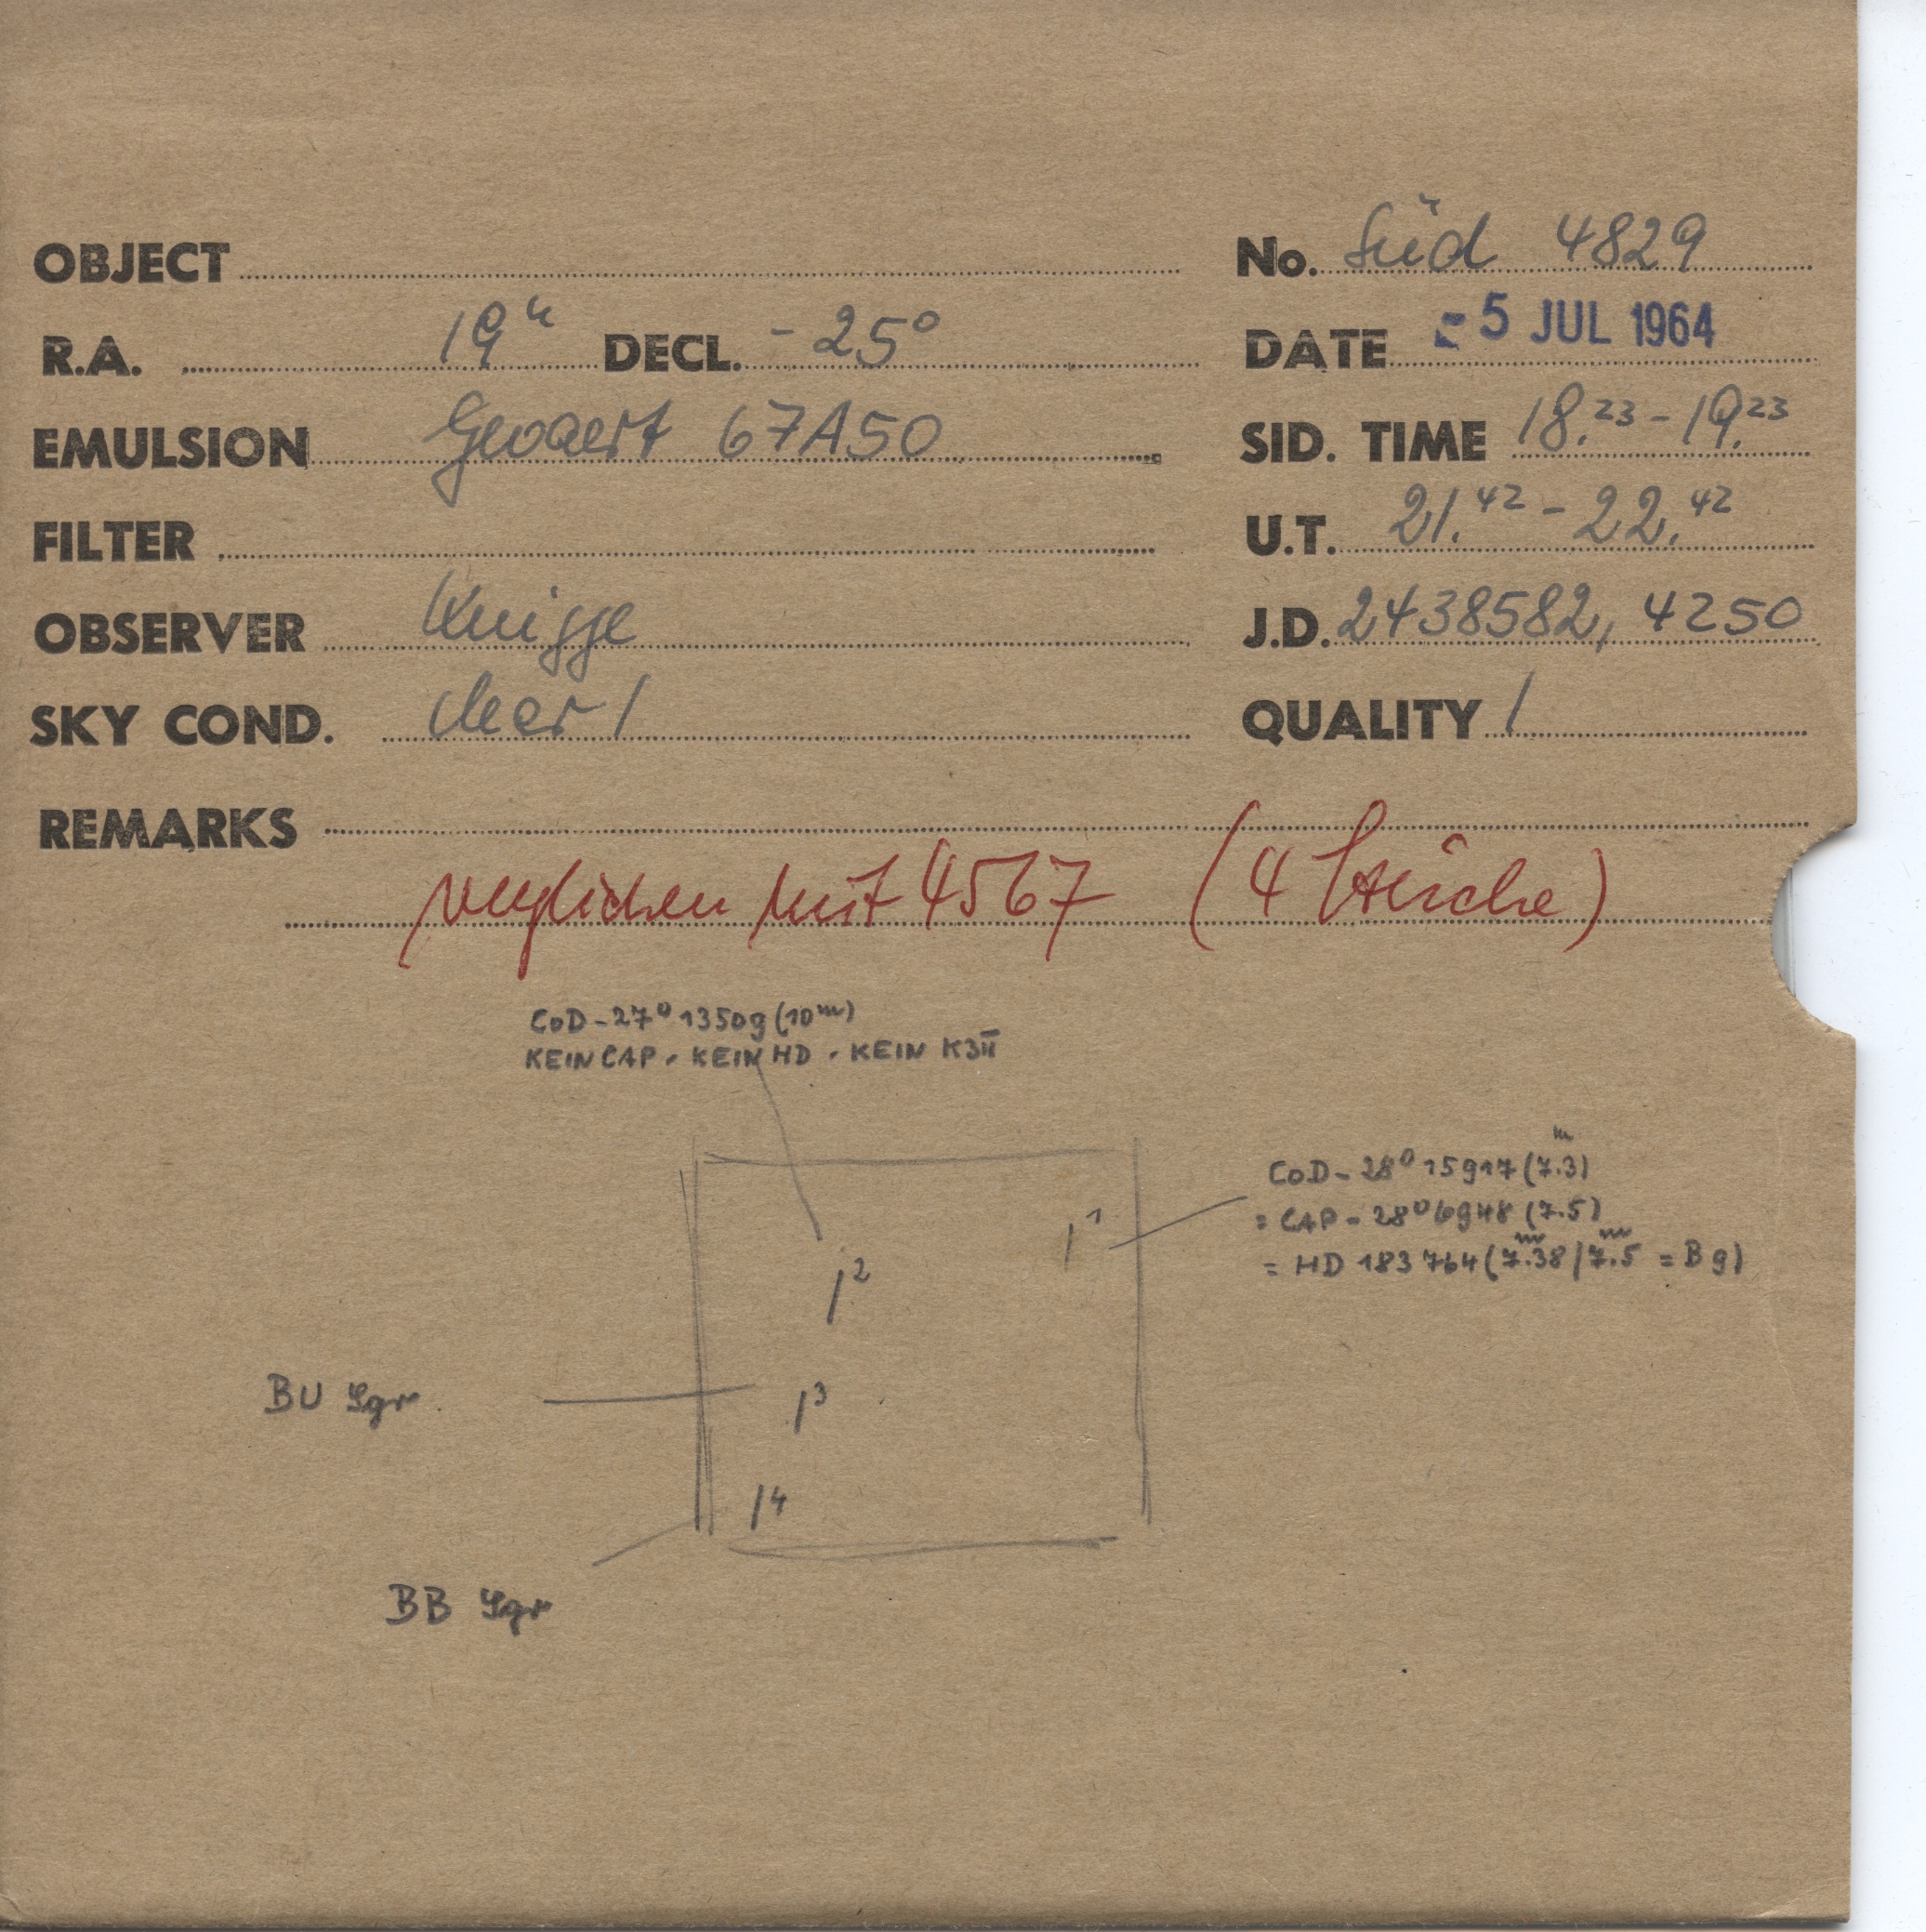 OBJECT
No. Süd 4829
R.A. 19h DECL. -25°
DATE -5 JUL 1964
EMULSION Gevaert 67A50
SID. TIME 18.23 - 19.23
FILTER
U.T. 21.42 - 22.42
OBSERVER Knigge
J.D. 2438582, 4250
SKY COND. clear 1
QUALITY 1
REMARKS
verglichen mit 4567 (4 Striche)
CoD-27° 13509 (10m)
KEIN CAP. KEIN HD. KEIN K3II
CoD-28° 15917 (7.3m)
= CAP-28° 6948 (7.5)
= HD 183764 (7.38m/7.5m = B9)
1
2
BU Sgr
3
4
BB Sgr